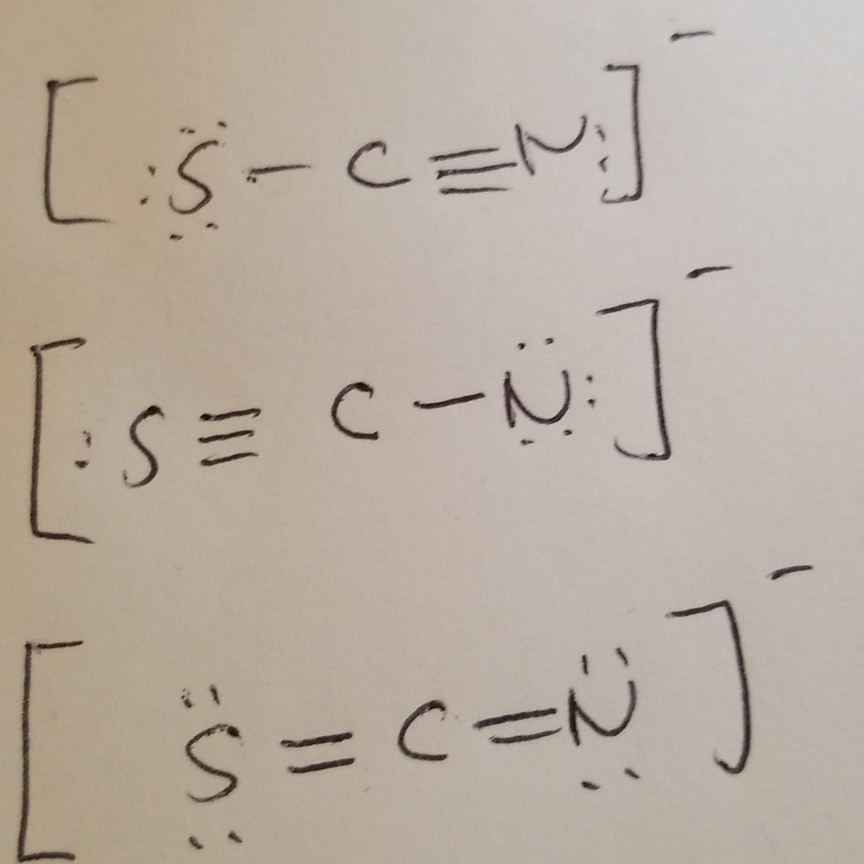 [:S̤̈ - C ≡ N:]⁻
[:S ≡ C - N̤̈:]⁻
[S̤̈ = C = N̤̈]⁻